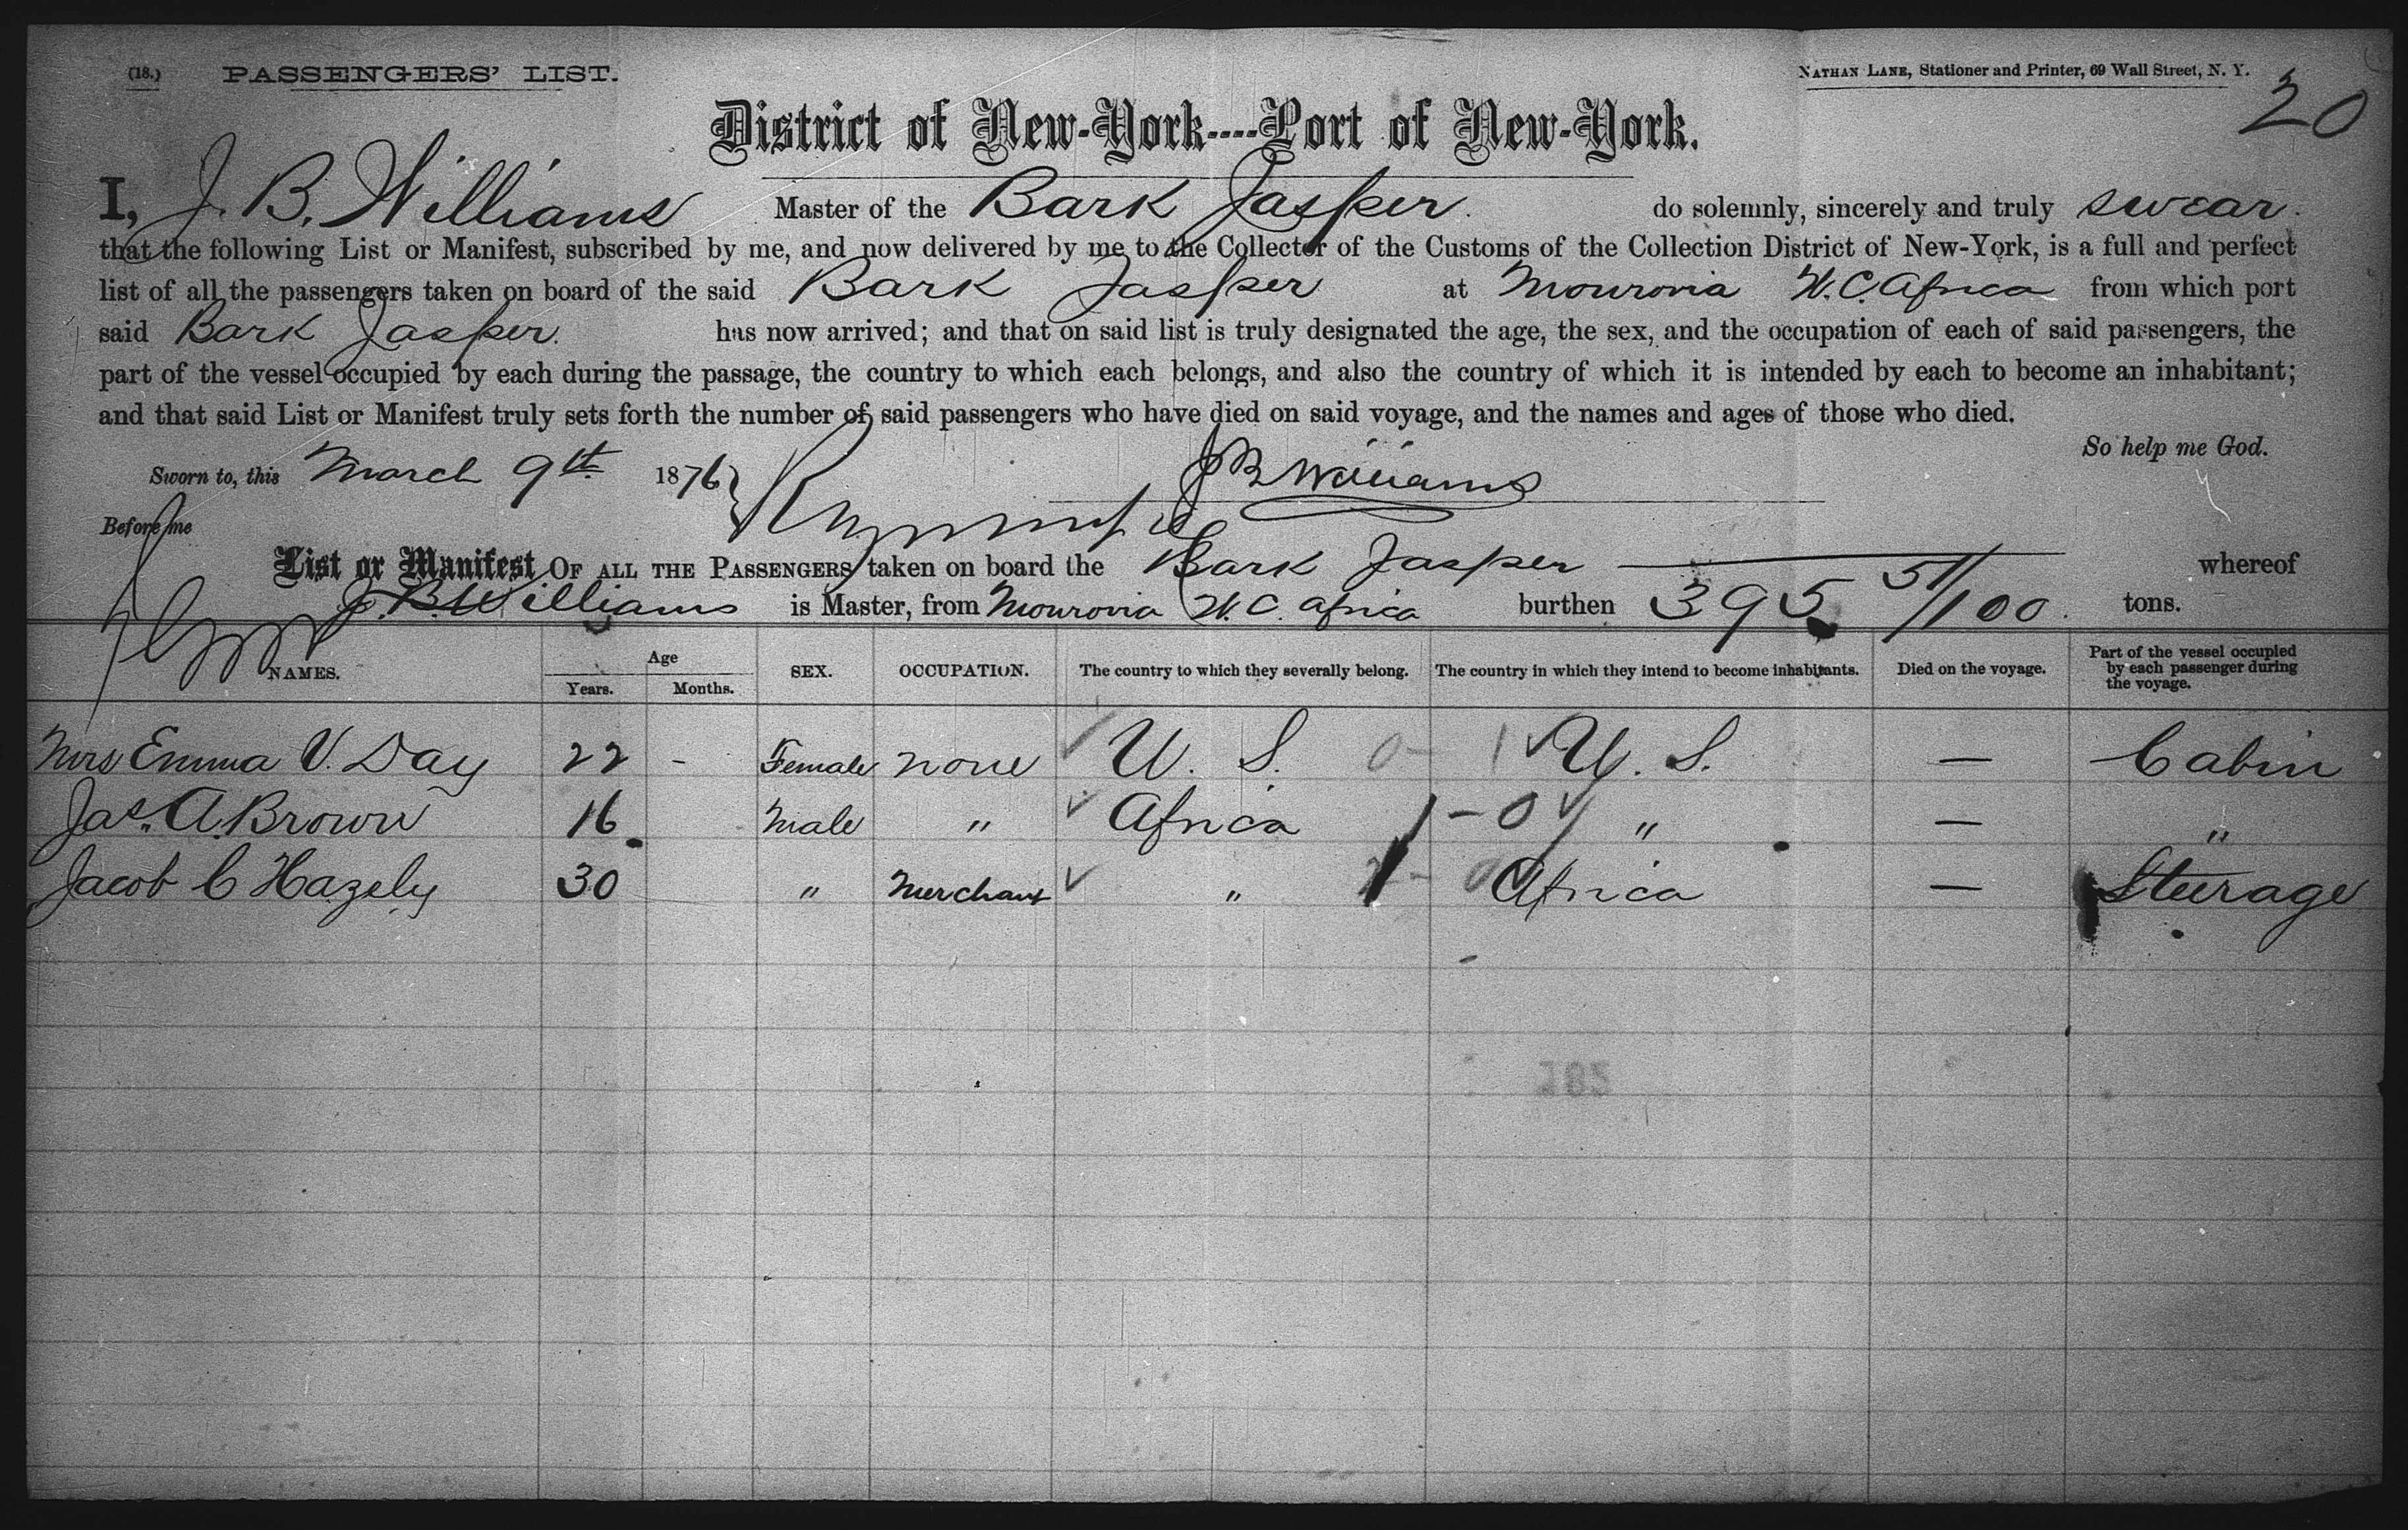 (18.) PASSENGERS' LIST.
NATHAN LANE, Stationer and Printer, 69 Wall Street, N. Y.
20
District of New-York----Port of New-York.
I, J. B. Williams Master of the Bark Jasper. do solemnly, sincerely and truly swear.
that the following List or Manifest, subscribed by me, and now delivered by me to the Collector of the Customs of the Collection District of New-York, is a full and perfect
list of all the passengers taken on board of the said Bark Jasper at Mourovia W. C. Africa from which port
said Bark Jasper. has now arrived; and that on said list is truly designated the age, the sex, and the occupation of each of said passengers, the
part of the vessel occupied by each during the passage, the country to which each belongs, and also the country of which it is intended by each to become an inhabitant;
and that said List or Manifest truly sets forth the number of said passengers who have died on said voyage, and the names and ages of those who died.
So help me God.
Sworn to, this March 9th 1876 } J B Williams
Before me
List or Manifest OF ALL THE PASSENGERS taken on board the Bark Jasper whereof
J. B. Williams is Master, from Mourovia W. C. Africa burthen 395 51/100. tons.
NAMES. Age Years. Months. SEX. OCCUPATION. The country to which they severally belong. The country in which they intend to become inhabitants. Died on the voyage. Part of the vessel occupied by each passenger during the voyage.
Mrs Emma V. Day 22 - Female none ✓ U. S. 0 - 1 ✓ U. S. — Cabin
Jas. A. Brown 16 Male " ✓ Africa 1 - 0 ✓ " — "
Jacob C Hazely 30 " Merchant ✓ " Africa — Steerage
102